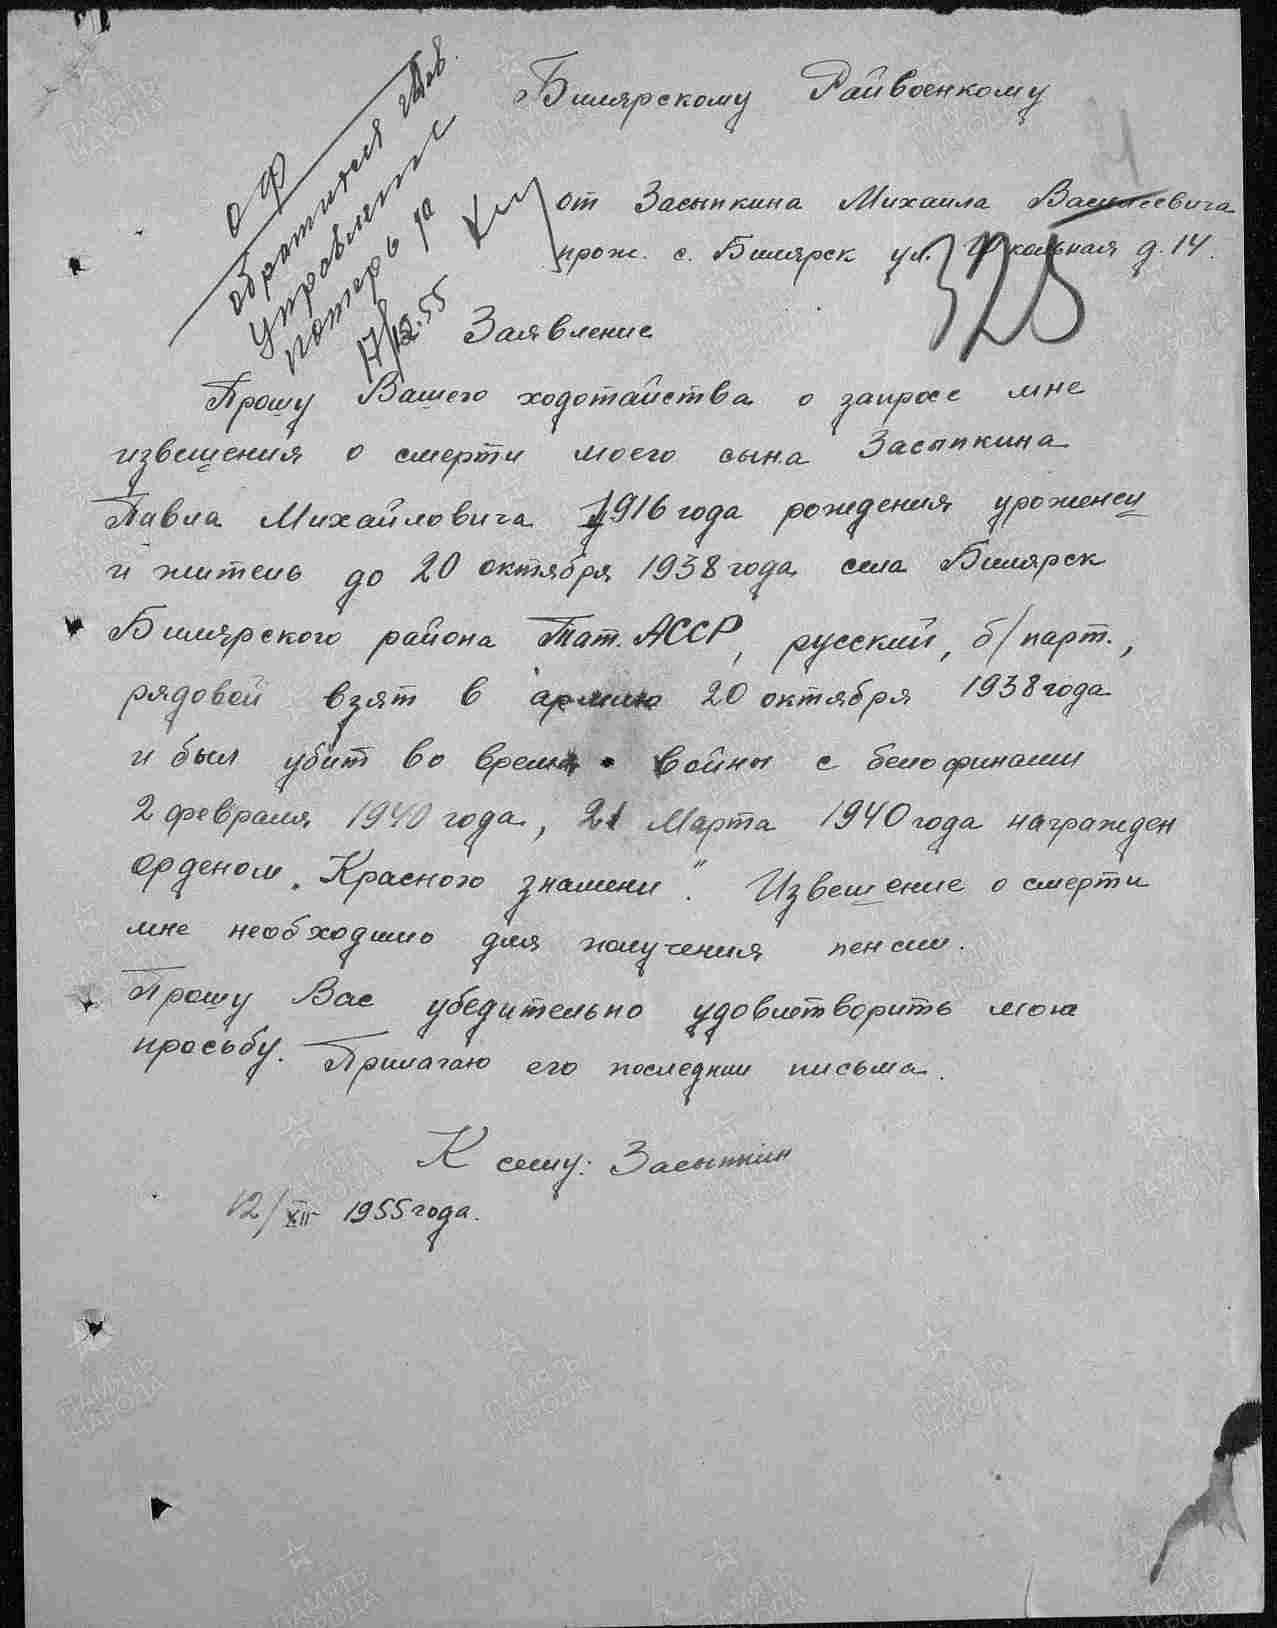 Билярскому Райвоенкому
от Засыпкина Михаила Васильевича
прож. с. Билярск ул. Школьная д. 14.
325
4
ОФ
обратится
Управлению
потерь
17/12.55
Заявление
Прошу Вашего ходотайства о запросе мне
извешения о смерти моего сына Засыпкина
Павла Михайловича 1916 года рождения уроженец
и житель до 20 октября 1938 года села Билярск
Билярского района Тат. АССР, русский, б/парт.,
рядовой взят в армию 20 октября 1938 года
и был убит во время войны с белофинами
2 февраля 1940 года, 21 Марта 1940 года награжден
орденом „Красного знамени". Извешение о смерти
мне необходимо для получения пенсии.
Прошу Вас убедительно удовлетворить мою
просьбу. Прилагаю его последнии письма.
К сему: Засыпкин
12/XII 1955 года.
ПАМЯТЬ НАРОДА